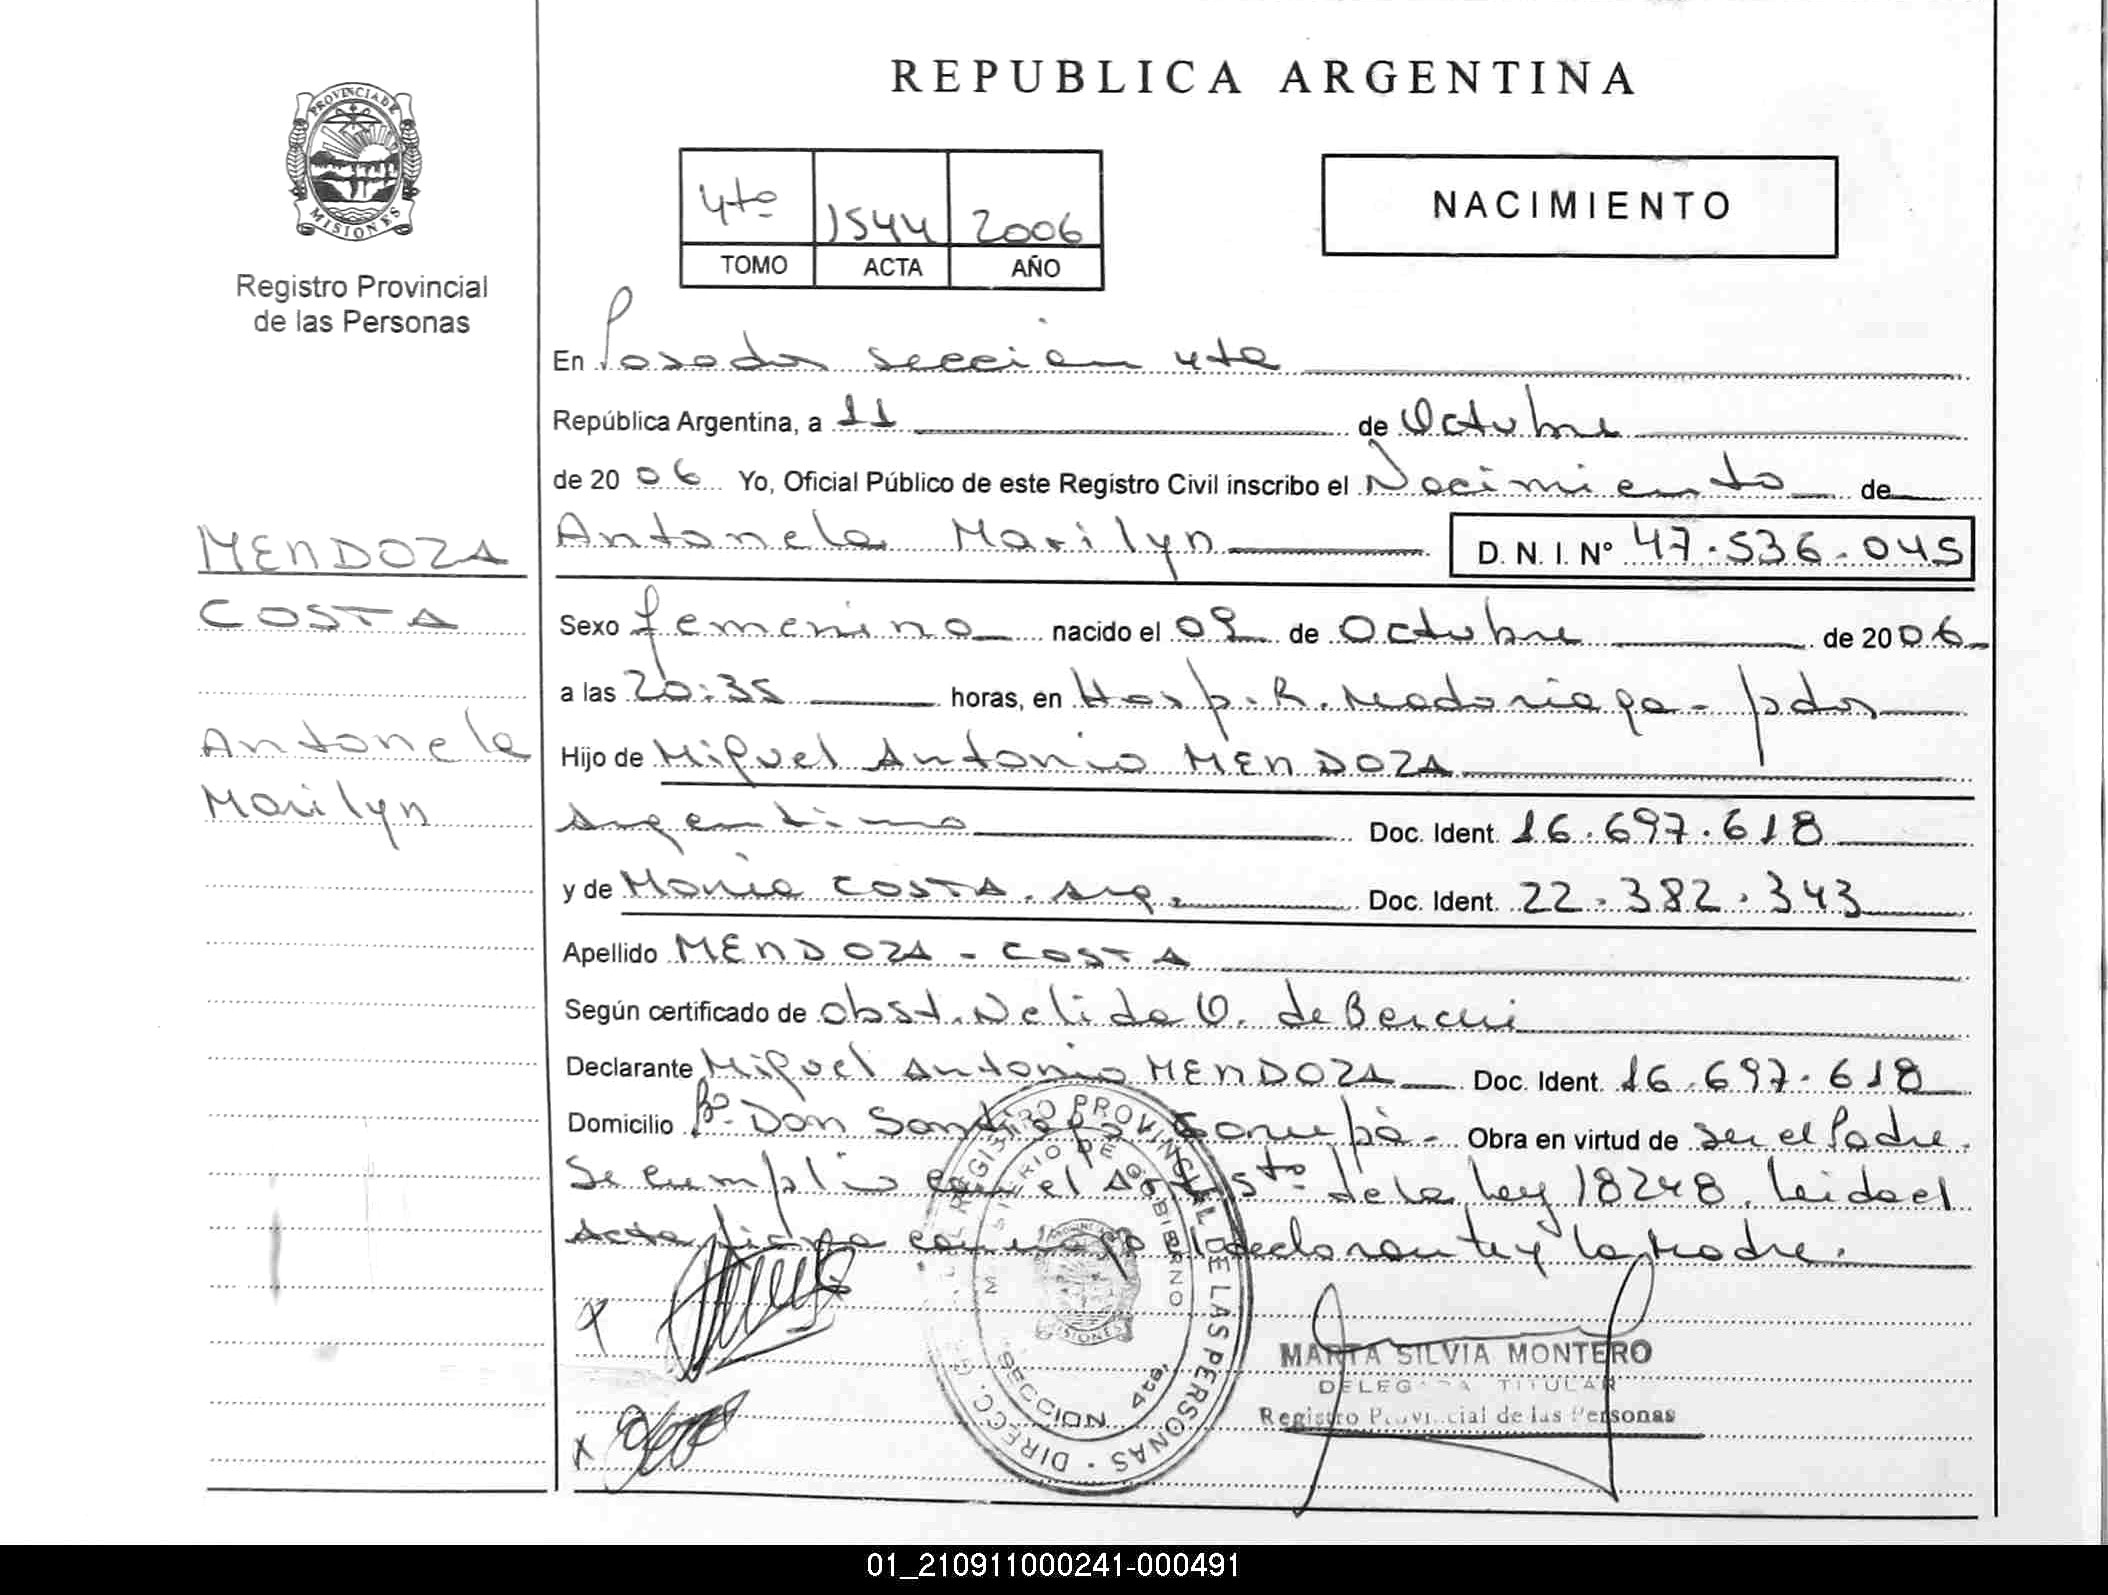 REPUBLICA ARGENTINA
PROVINCIA DE
MISIONES
Registro Provincial
de las Personas
4to 1544 2006
TOMO ACTA AÑO
NACIMIENTO
En Posadas sección 4ta
República Argentina, a 11 de Octubre
de 2006 Yo, Oficial Público de este Registro Civil inscribo el Nacimiento de
MENDOZA
COSTA
Antonela
Marilyn
Antonela Marilyn D. N. I. Nº 47.536.045
Sexo femenino nacido el 09 de Octubre de 2006
a las 20:35 horas, en Hosp. R. Madariaga - pdas
Hijo de Miguel Antonio MENDOZA
Argentino Doc. Ident. 16.697.618
y de María COSTA. Arg. Doc. Ident. 22.382.343
Apellido MENDOZA - COSTA
Según certificado de obst. Nelida O. de
Declarante Miguel Antonio MENDOZA Doc. Ident. 16.697.618
Domicilio Bº. Don Santiago Garupá - Obra en virtud de ser el Padre.
Se cumplio con el Art 5to de la Ley 18248. Leida el
Acta firma conmigo el declarante y la Madre.
X
X
DIRECC. GRAL. DEL REGISTRO PROVINCIAL DE LAS PERSONAS
MINISTERIO DE GOBIERNO
MISIONES
SECCION 4ta.
MARTA SILVIA MONTERO
DELEGADA TITULAR
Registro Provincial de las Personas
01_210911000241-000491